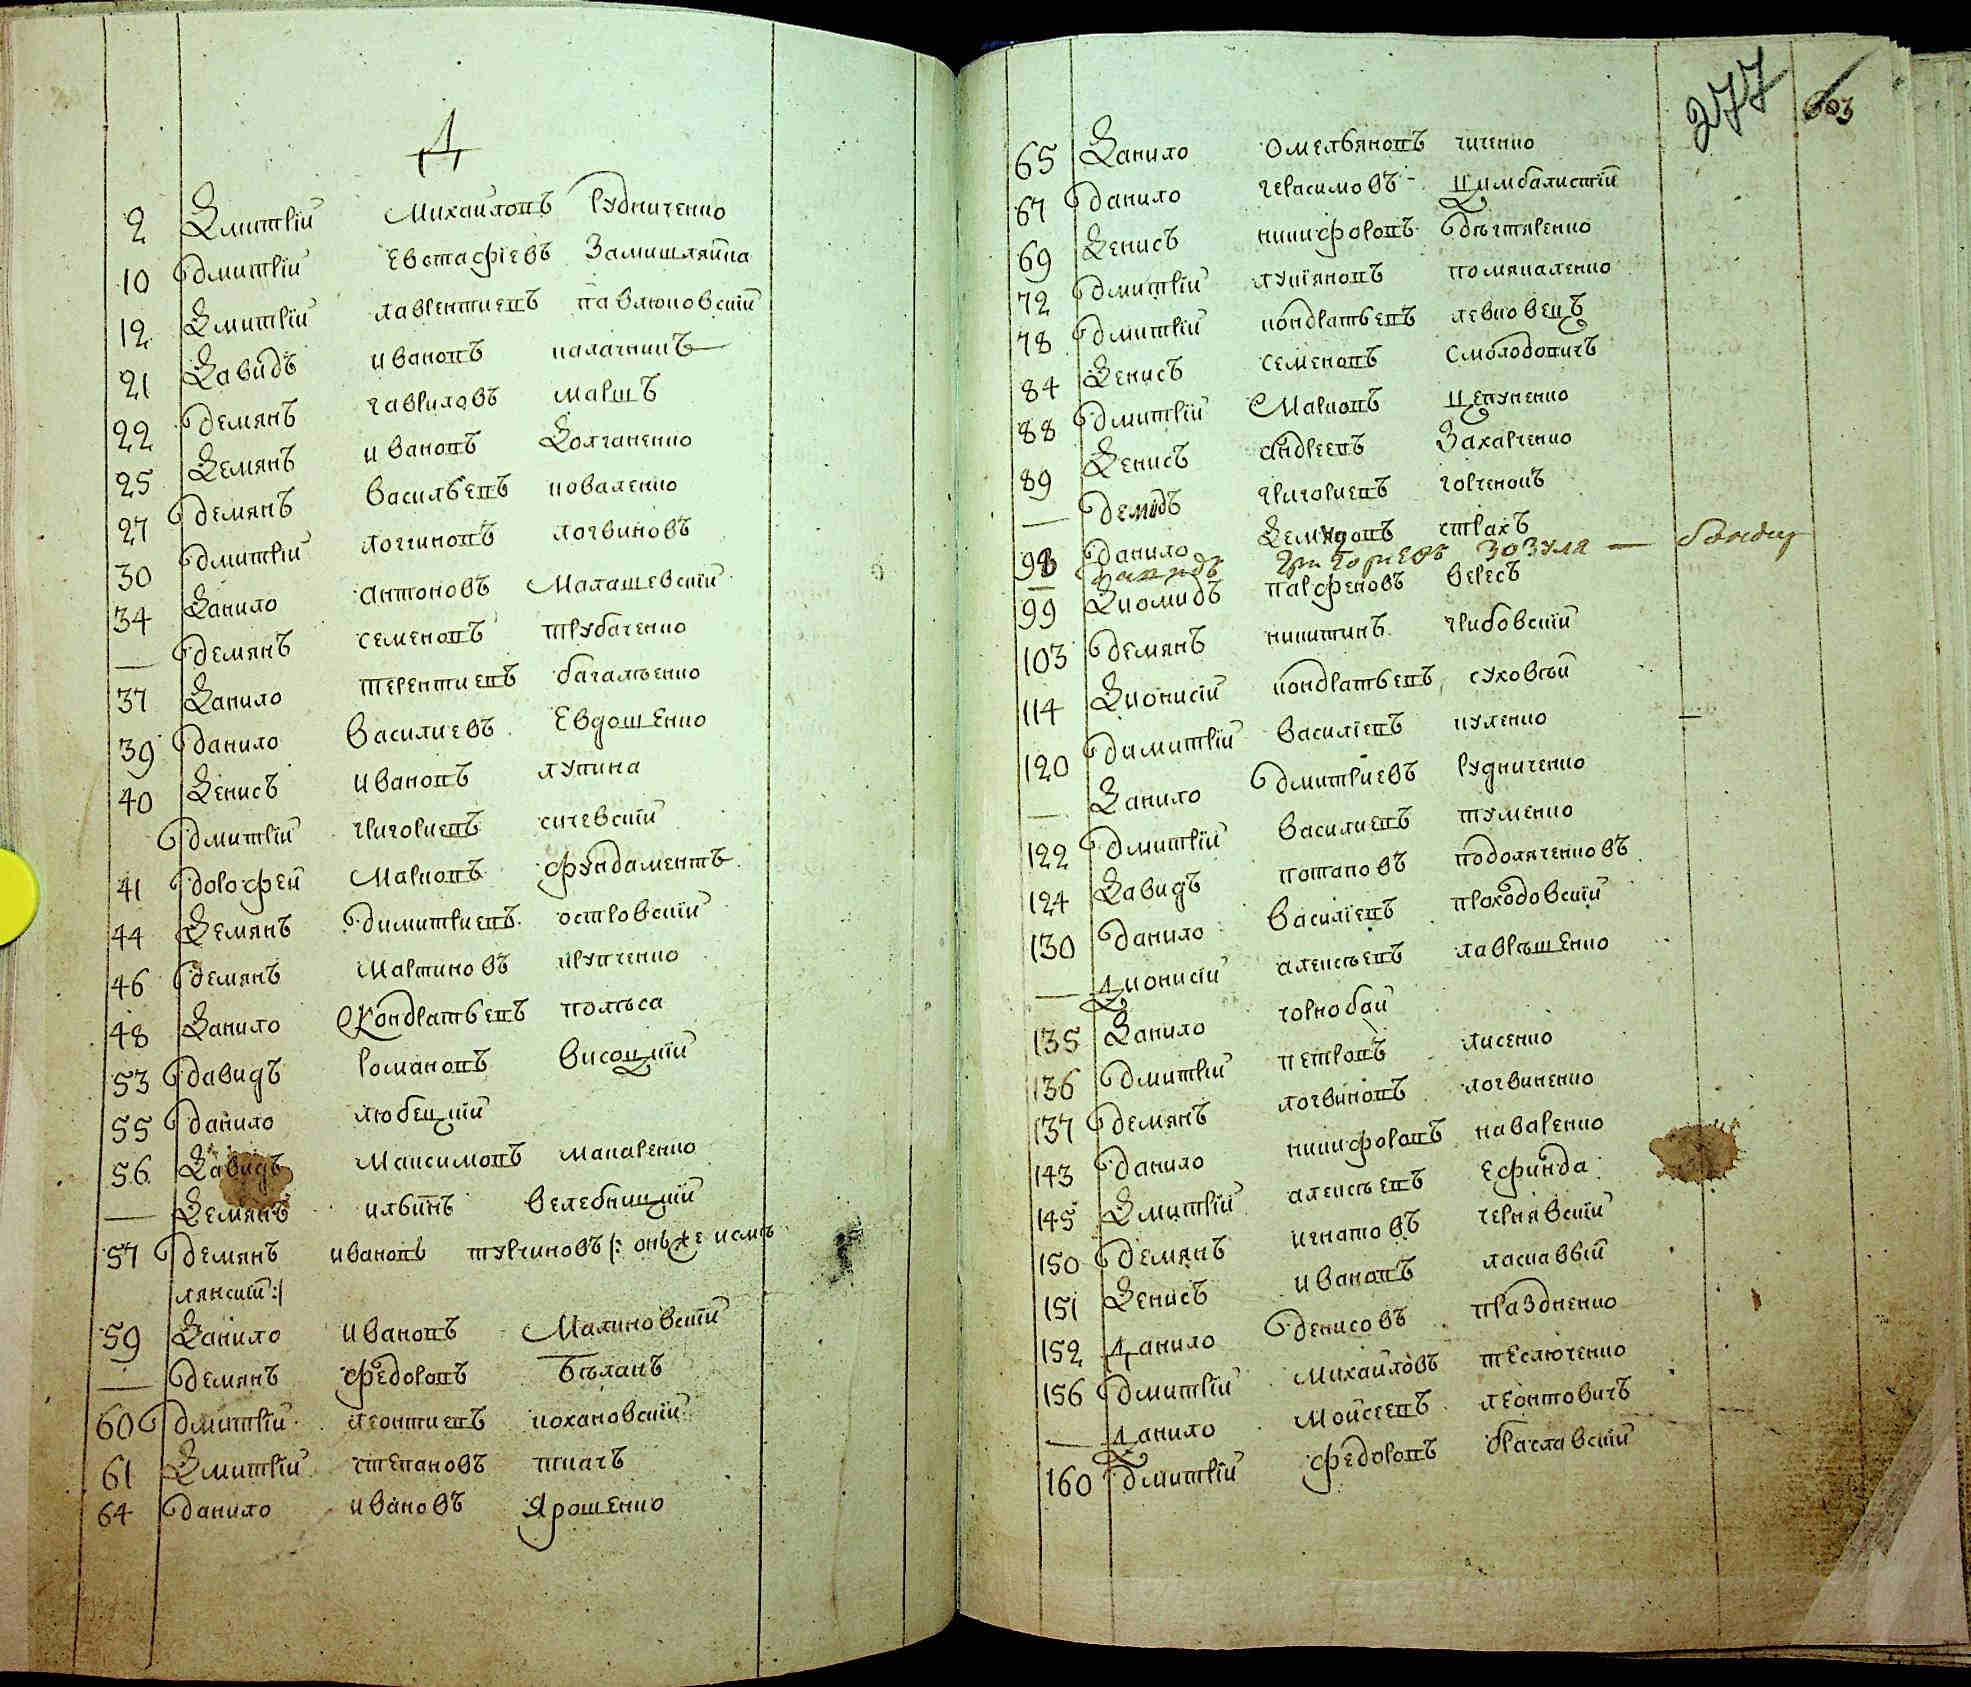 Д
2 Дмитрій Михайловъ Рудниченко
10 Дмитрій Евстафіевъ Замишляйка
12 Дмитрій Лаврентиевъ Павлюковскій
21 Давидъ Ивановъ Калачникъ
22 Демянъ Гавриловъ Маршъ
25 Демянъ Ивановъ Долганенко
27 Демянъ Васильевъ Коваленко
30 Дмитрій Логгиновъ Логвиновъ
34 Данило Антоновъ Малашевскій
— Демянъ Семеновъ Трубаченко
37 Данило Терентиевъ Багалѣенко
39 Данило Василиевъ Евдошенко
40 Денисъ Ивановъ Лупина
Дмитрій Григориевъ Сичевскій
41 Дорофей Марковъ Фундаментъ
44 Демянъ Димитриевъ Островскій
46 Демянъ Мартиновъ Крупченко
48 Данило Кондратьевъ Полѣса
53 Давидъ Романовъ Висоцкій
55 Данило Любецкій
56 Давидъ Максимовъ Макаренко
— Демянъ Ильинъ Велебницкій
57 Демянъ Ивановъ Турчиновъ /: онъ же Исмѣ
лянский :/
59 Данило Ивановъ Малиновскій
— Демянъ Федоровъ Бѣланъ
60 Дмитрій Леонтиевъ Кохановскій
61 Дмитрій Степановъ Ткачъ
64 Данило Ивановъ Ярошенко
277 603
65 Данило Омельяновъ Гиченко
67 Данило Герасимовъ Цимбалистій
69 Денисъ Никифоровъ Дѣгтяренко
72 Дмитрій Лукіяновъ Помякаленко
78 Дмитрій Кондратьевъ Левковецъ
84 Денисъ Семеновъ Смолодовичъ
88 Дмитрій Марковъ Цепукенко
89 Денисъ Андреевъ Захарченко
— Демидъ Григориевъ Горченокъ
98 Данило Демидовъ Страхъ
Григориевъ Зозуля —
99 Диомидъ Парфеновъ Вересъ
103 Демянъ Никитинъ Грибовскій
114 Дионисій Кондратьевъ Суховѣй
120 Димитрій Василіевъ Куленко
— Данило Дмитриевъ Рудниченко
122 Дмитрій Василиевъ Туменко
124 Давидъ Потаповъ Подоляченковъ
130 Данило Василіевъ Проходовскій
— Дионисій Алексѣевъ Лаврѣшенко
135 Данило Горнобай
136 Дмитрій Петровъ Лисенко
137 Демянъ Логвиновъ Логвиненко
143 Данило Никифоровъ Наваренко
145 Дмитрій Алексѣевъ Ефинда
150 Демянъ Игнатовъ Чернявскій
151 Денисъ Ивановъ Ласкавый
152 Данило Денисовъ Праздненко
156 Дмитрій Михайловъ Теслюченко
— Данило Мойсеевъ Леонтовичъ
160 Дмитрій Федоровъ Браславскій